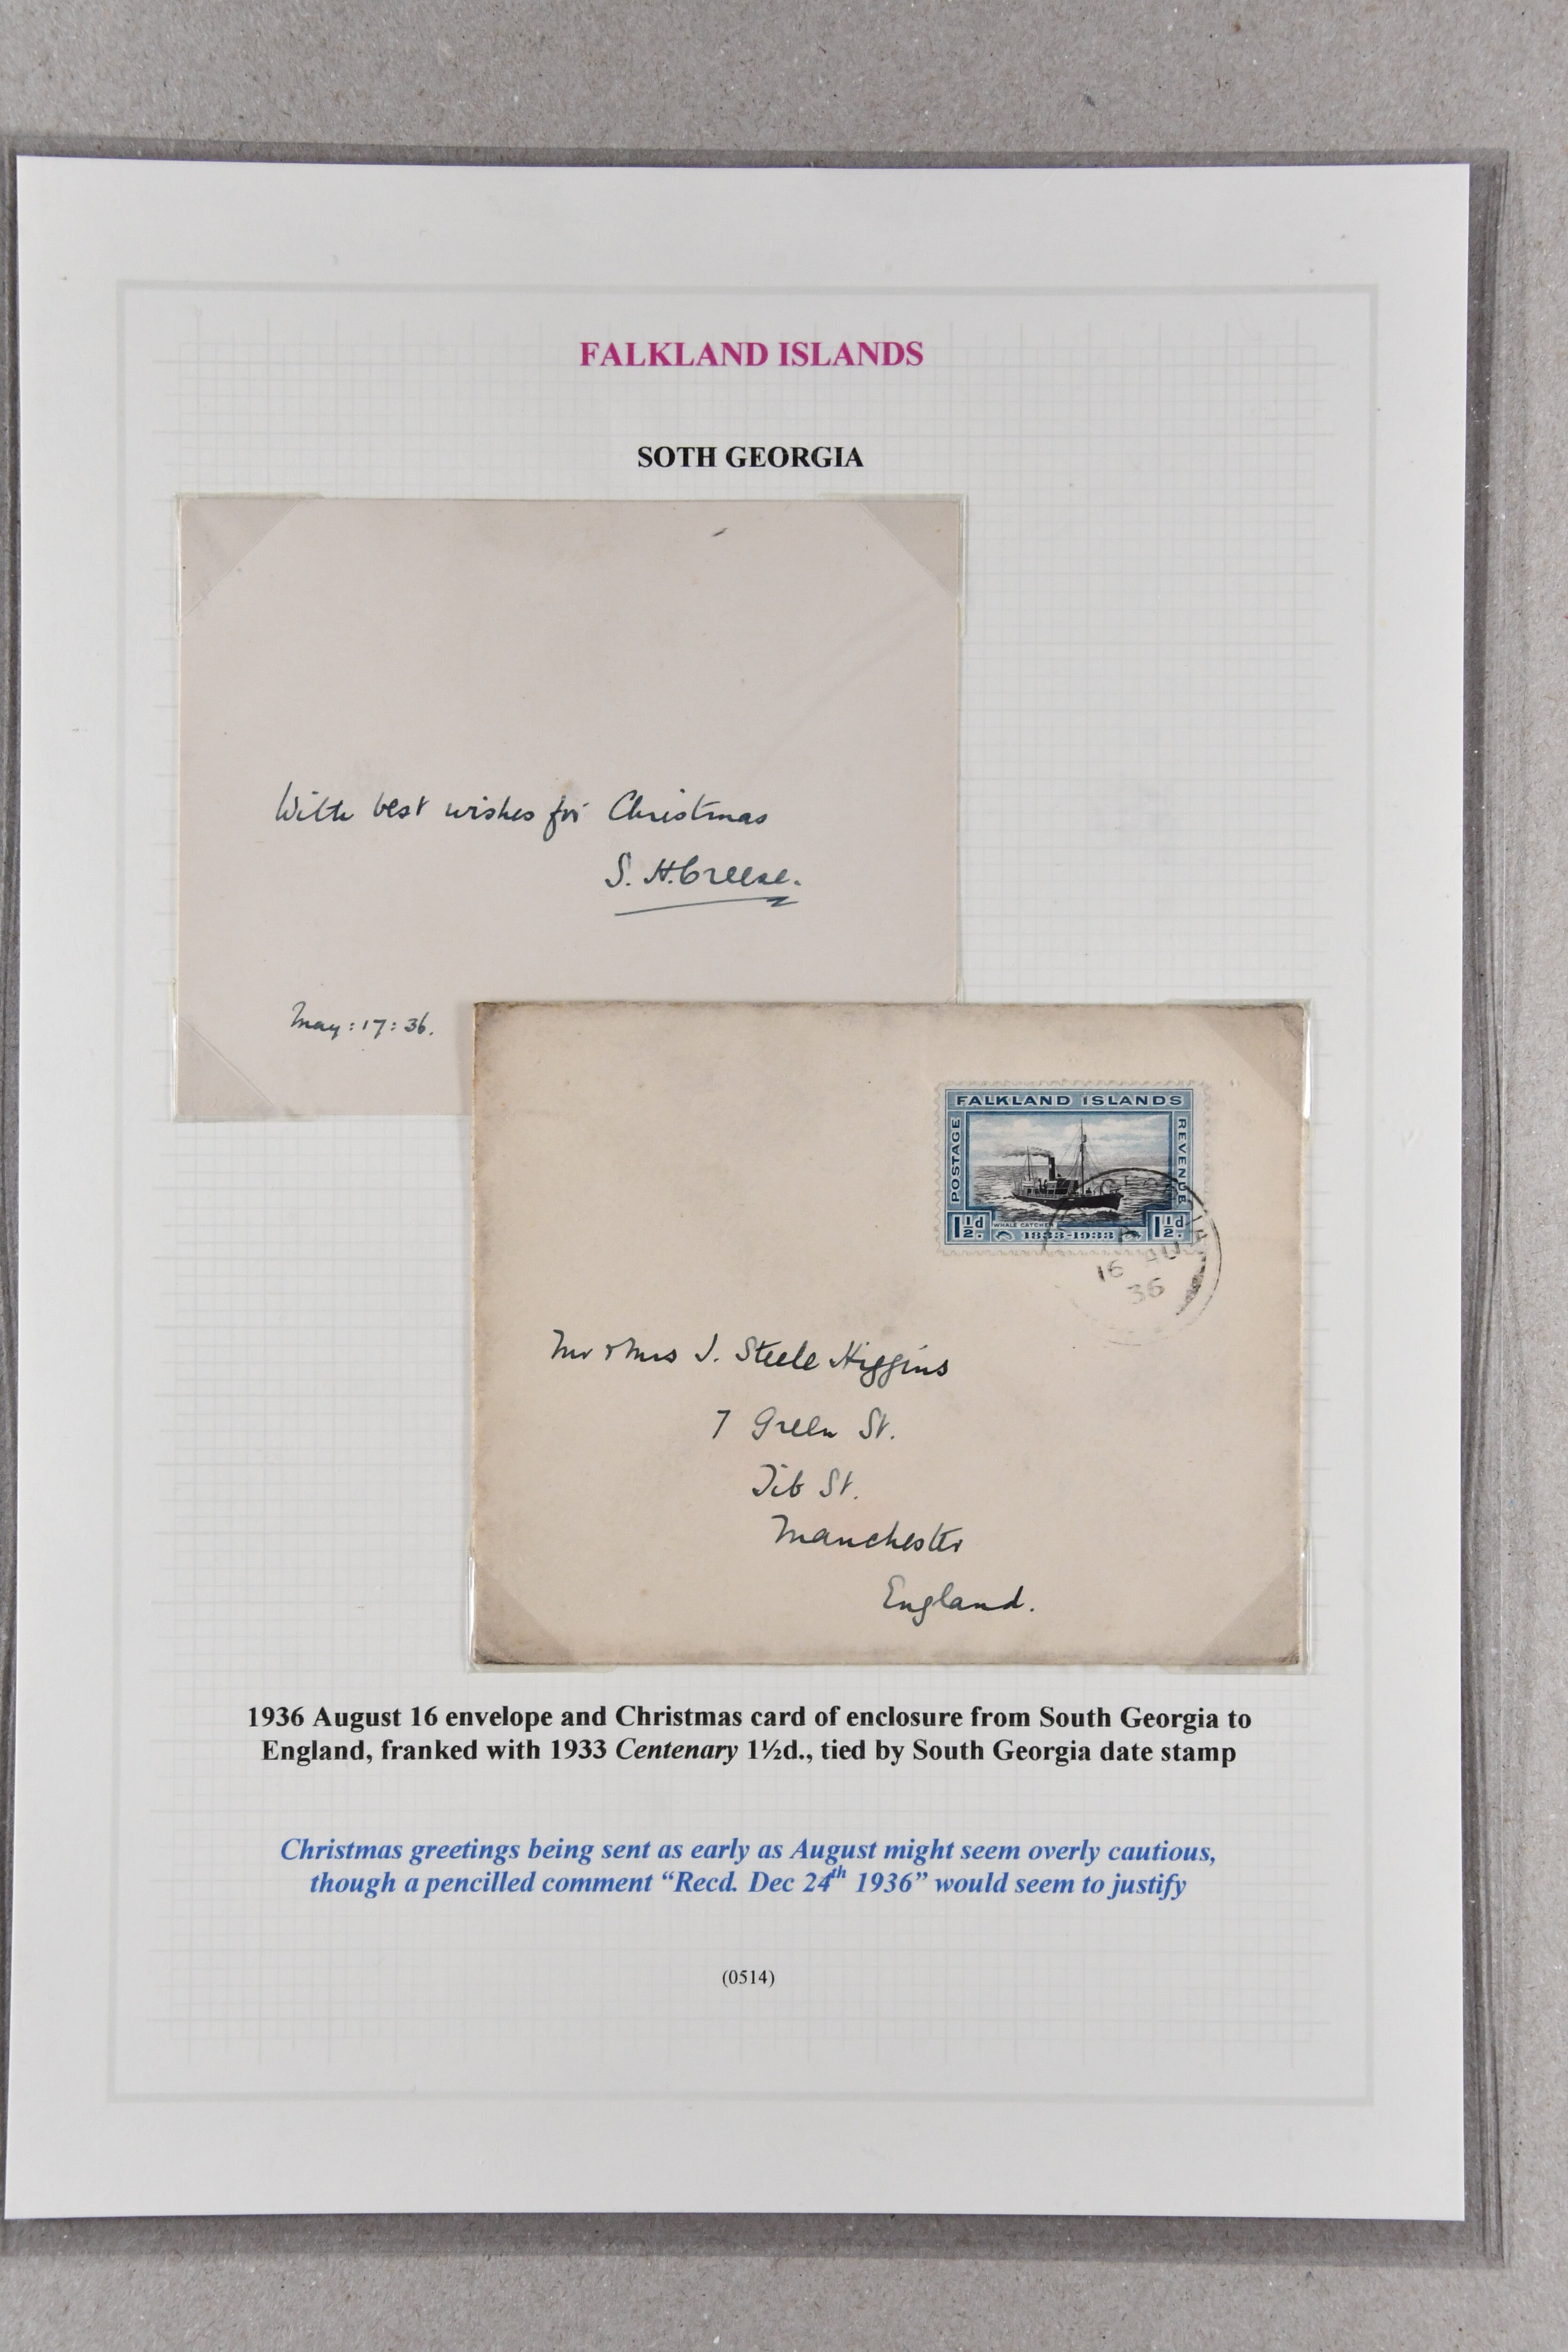 FALKLAND ISLANDS
SOTH GEORGIA
With best wishes for Christmas
S. H. Creese.
May: 17: 36.
FALKLAND ISLANDS
POSTAGE
REVENUE
1½d
WHALE CATCHER
1½d
1833-1933
16 AU
36
Mr & Mrs J. Steele Higgins
7 Green St.
Tib St.
Manchester
England.
1936 August 16 envelope and Christmas card of enclosure from South Georgia to
England, franked with 1933 Centenary 1½d., tied by South Georgia date stamp
Christmas greetings being sent as early as August might seem overly cautious,
though a pencilled comment “Recd. Dec 24th 1936” would seem to justify
(0514)